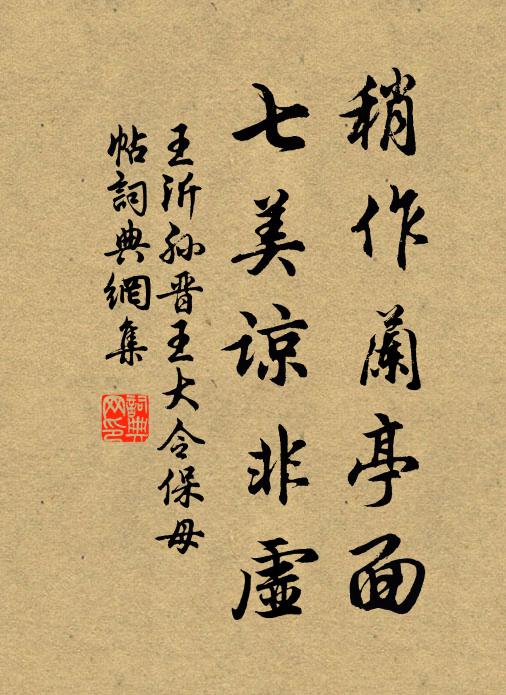 稍作蘭亭面
七美諒非虛
王沂孙晋王大令保母
帖詞典網集
詞典
网印